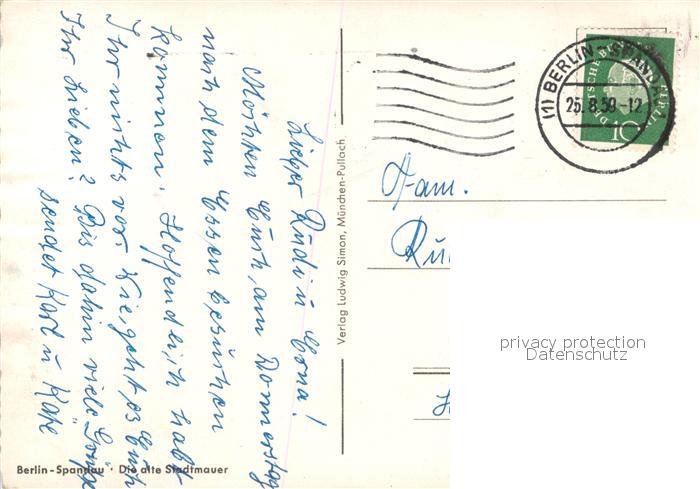 Lieber Rudi u Erna!
Möchten Euch am Donnerstag
nach dem Essen besuchen
kommen. Hoffendlich habt
Ihr nichts vor. Wie geht es Euch
Ihr Lieben? Bis dahin viele Grüße
sendet Karl u Käte
Berlin-Spandau · Die alte Stadtmauer
Verlag Ludwig Simon, München-Pullach
(1) BERLIN-SPANDAU 1
25.8.59-12
DEUTSCHE BUNDESPOST BERLIN
10
Fam.
privacy protection
Datenschutz